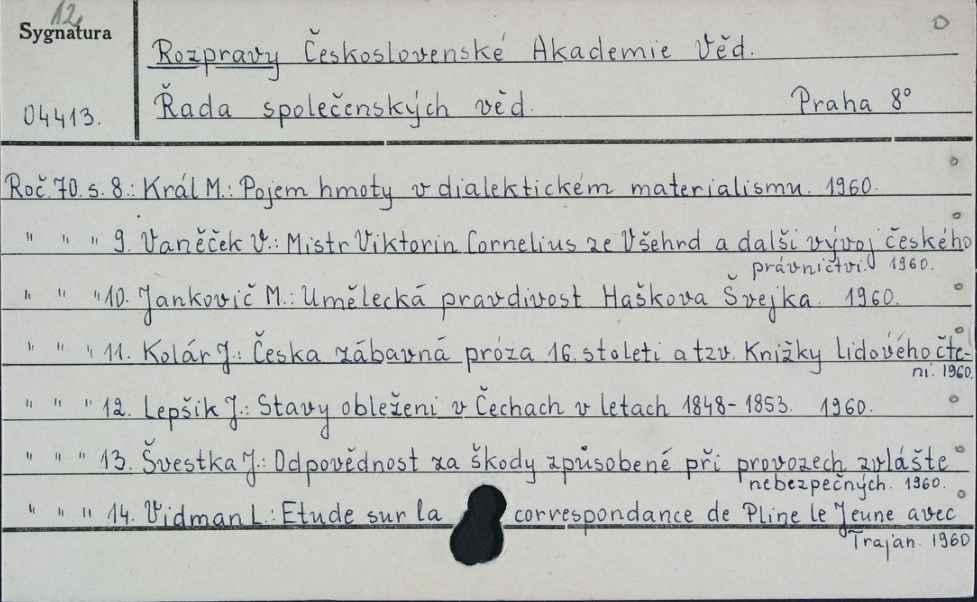 12
Sygnatura
04413.
Rozpravy Československé Akademie Věd.
Řada společenských věd. Praha 8°
Roč. 70. s. 8.: Král M.: Pojem hmoty v dialektickém materialismu. 1960.
" " " 9. Vaněček V.: Mistr Viktorin Cornelius ze Všehrd a další vývoj českého
právnictví. 1960.
" " " 10. Jankovič M.: Umělecká pravdivost Haškova Švejka. 1960.
" " " 11. Kolár J.: Česka zábavná próza 16. stoleti a tzv. Knižky lidového čte-
ni. 1960.
" " " 12. Lepšik J.: Stavy obleženi v Čechach v letach 1848-1853. 1960.
" " " 13. Švestka J.: Odpovědnost za škody způsobené při provozech zvlášte
nebezpečných. 1960.
" " " 14. Vidman L.: Etude sur la correspondance de Pline le Jeune avec
Trajan. 1960